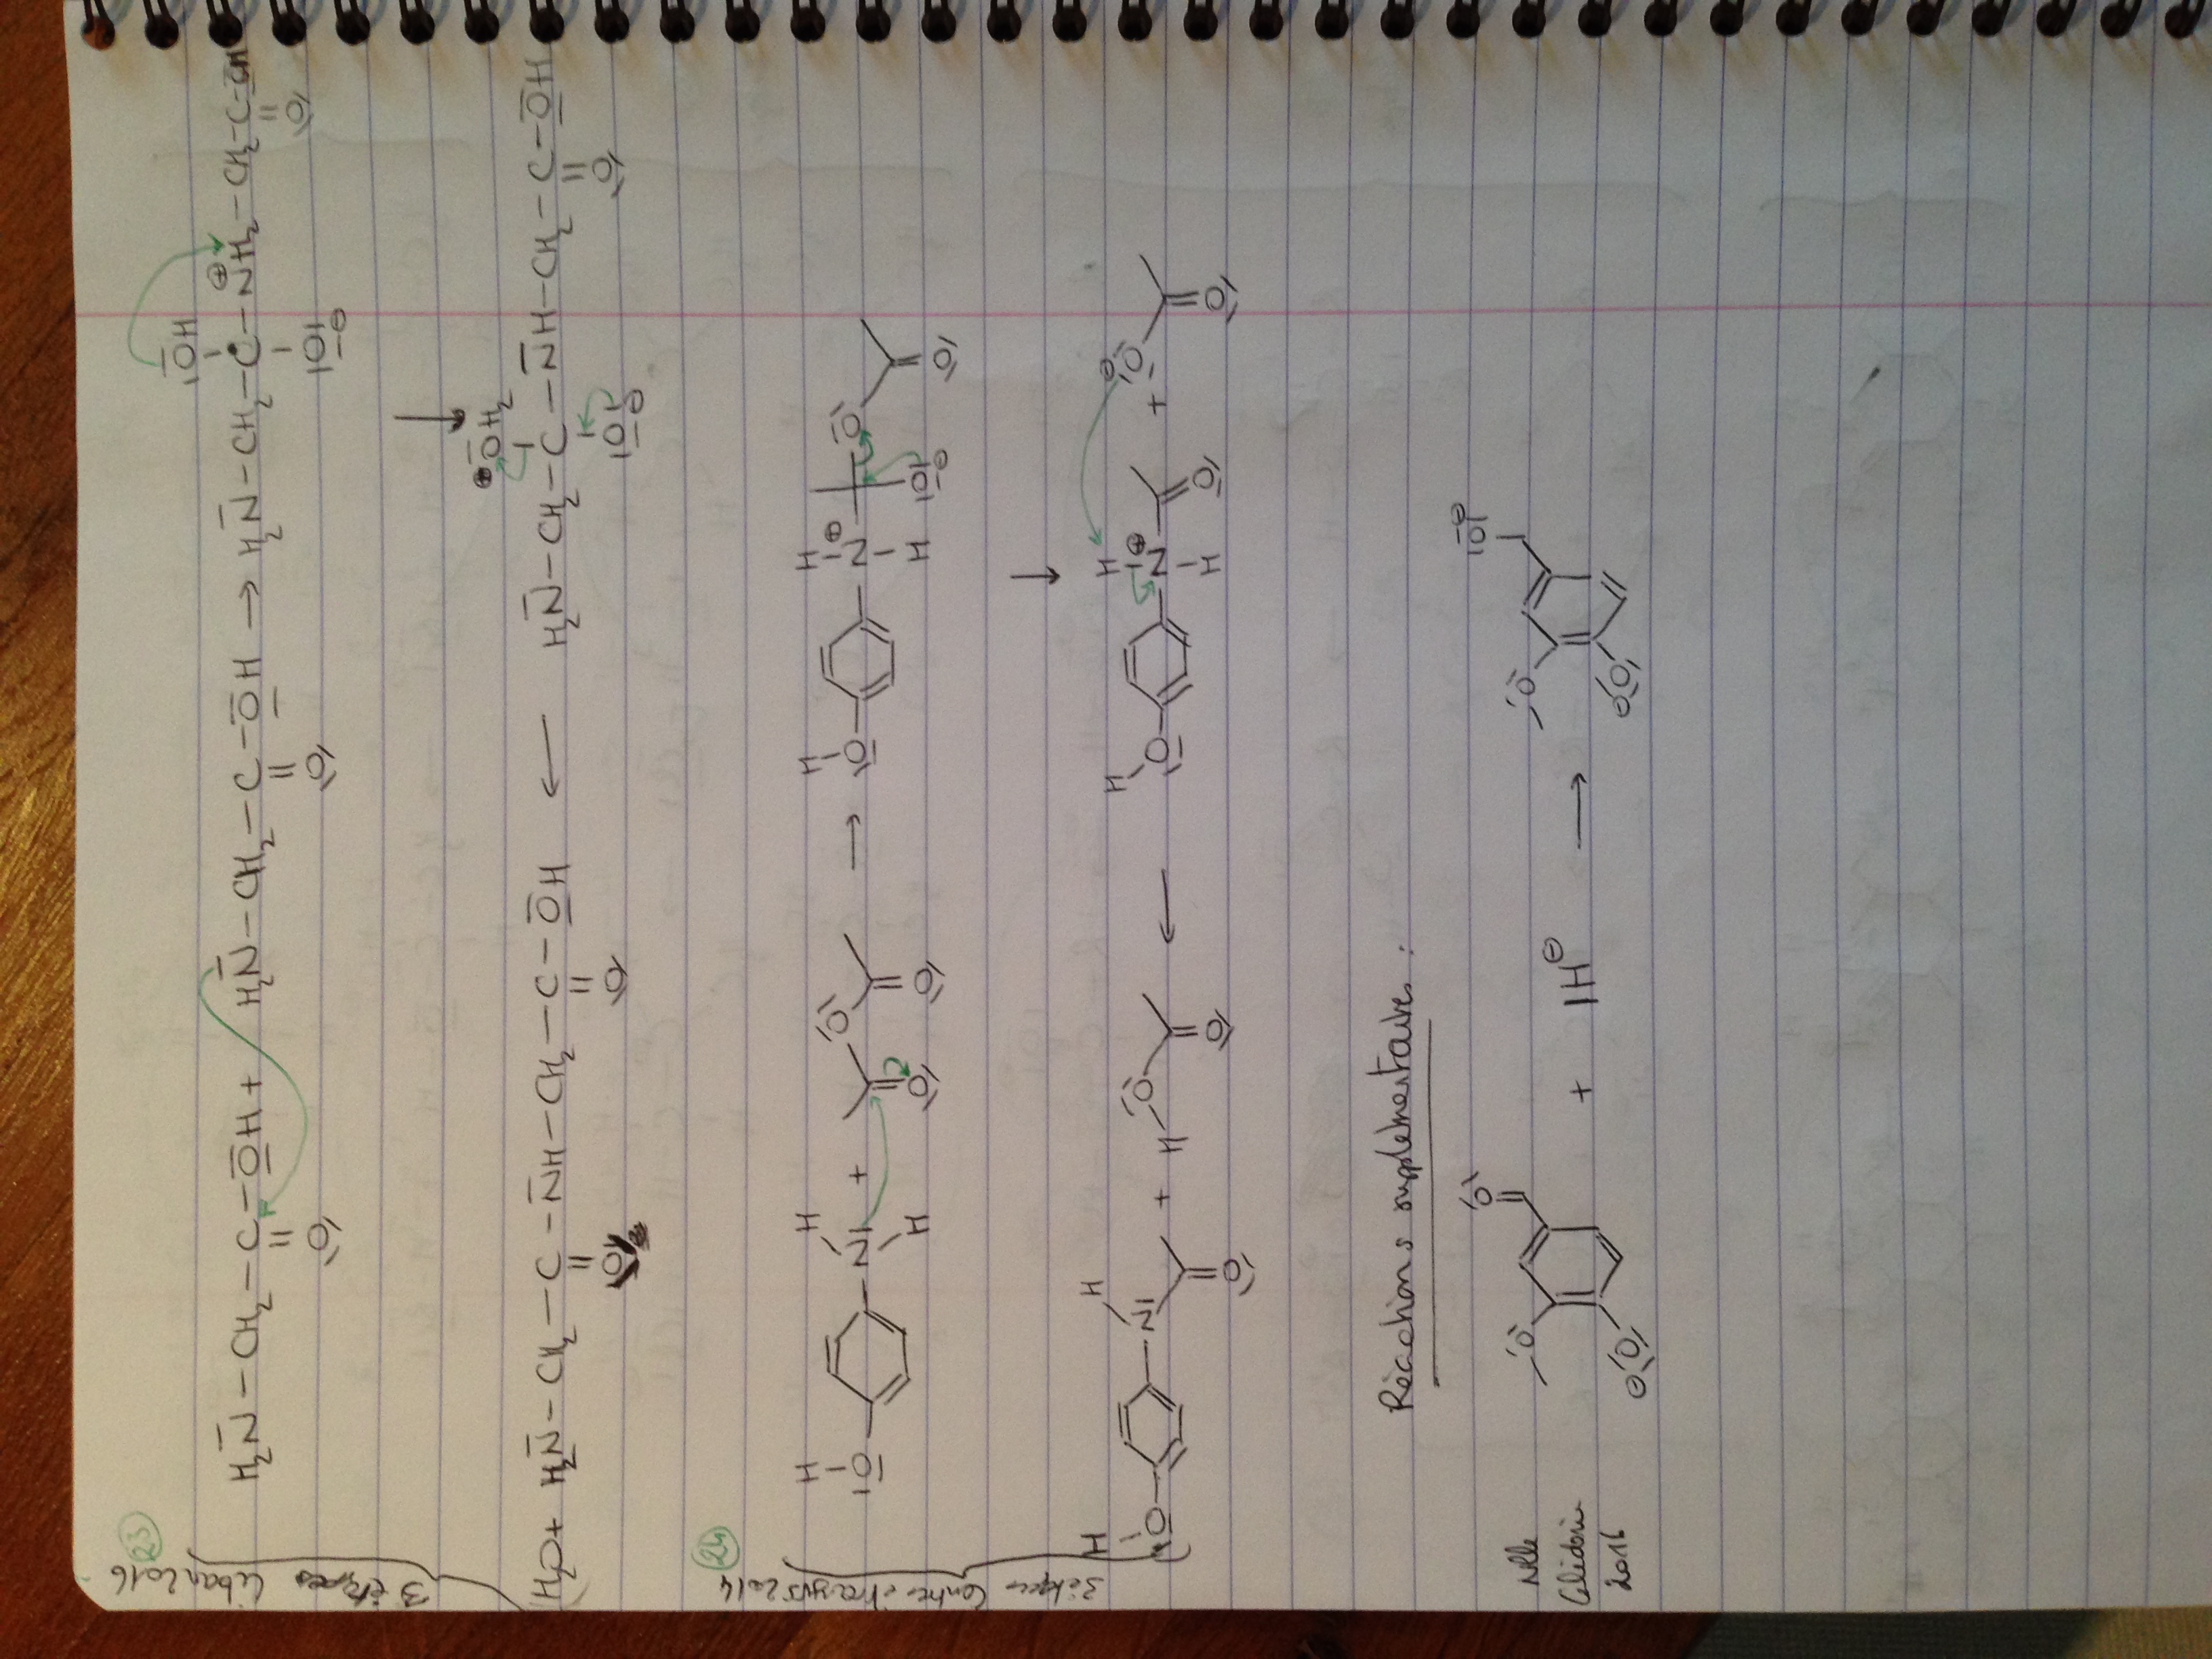 3 étapes Liban 2016
23
H2N – CH2 – C – OH + H2N – CH2 – C – OH → H2N – CH2 – C – NH2 – CH2 – C – OH
H2O + H2N – CH2 – C – NH – CH2 – C – OH ← H2N – CH2 – C – NH – CH2 – C – OH
3 étapes Centres étrangers 2014
24
H – O – N – H + O = O = O → H – O – N⊕ – H O⊖ O = O
H – O – N – H = O + H – O = O ← H – O – N⊕ – H = O + O⊖ = O
Réactions supplémentaires :
Nlle
Calédonie
2016
⊖O O = O + IH⊖ → ⊖O O O⊖